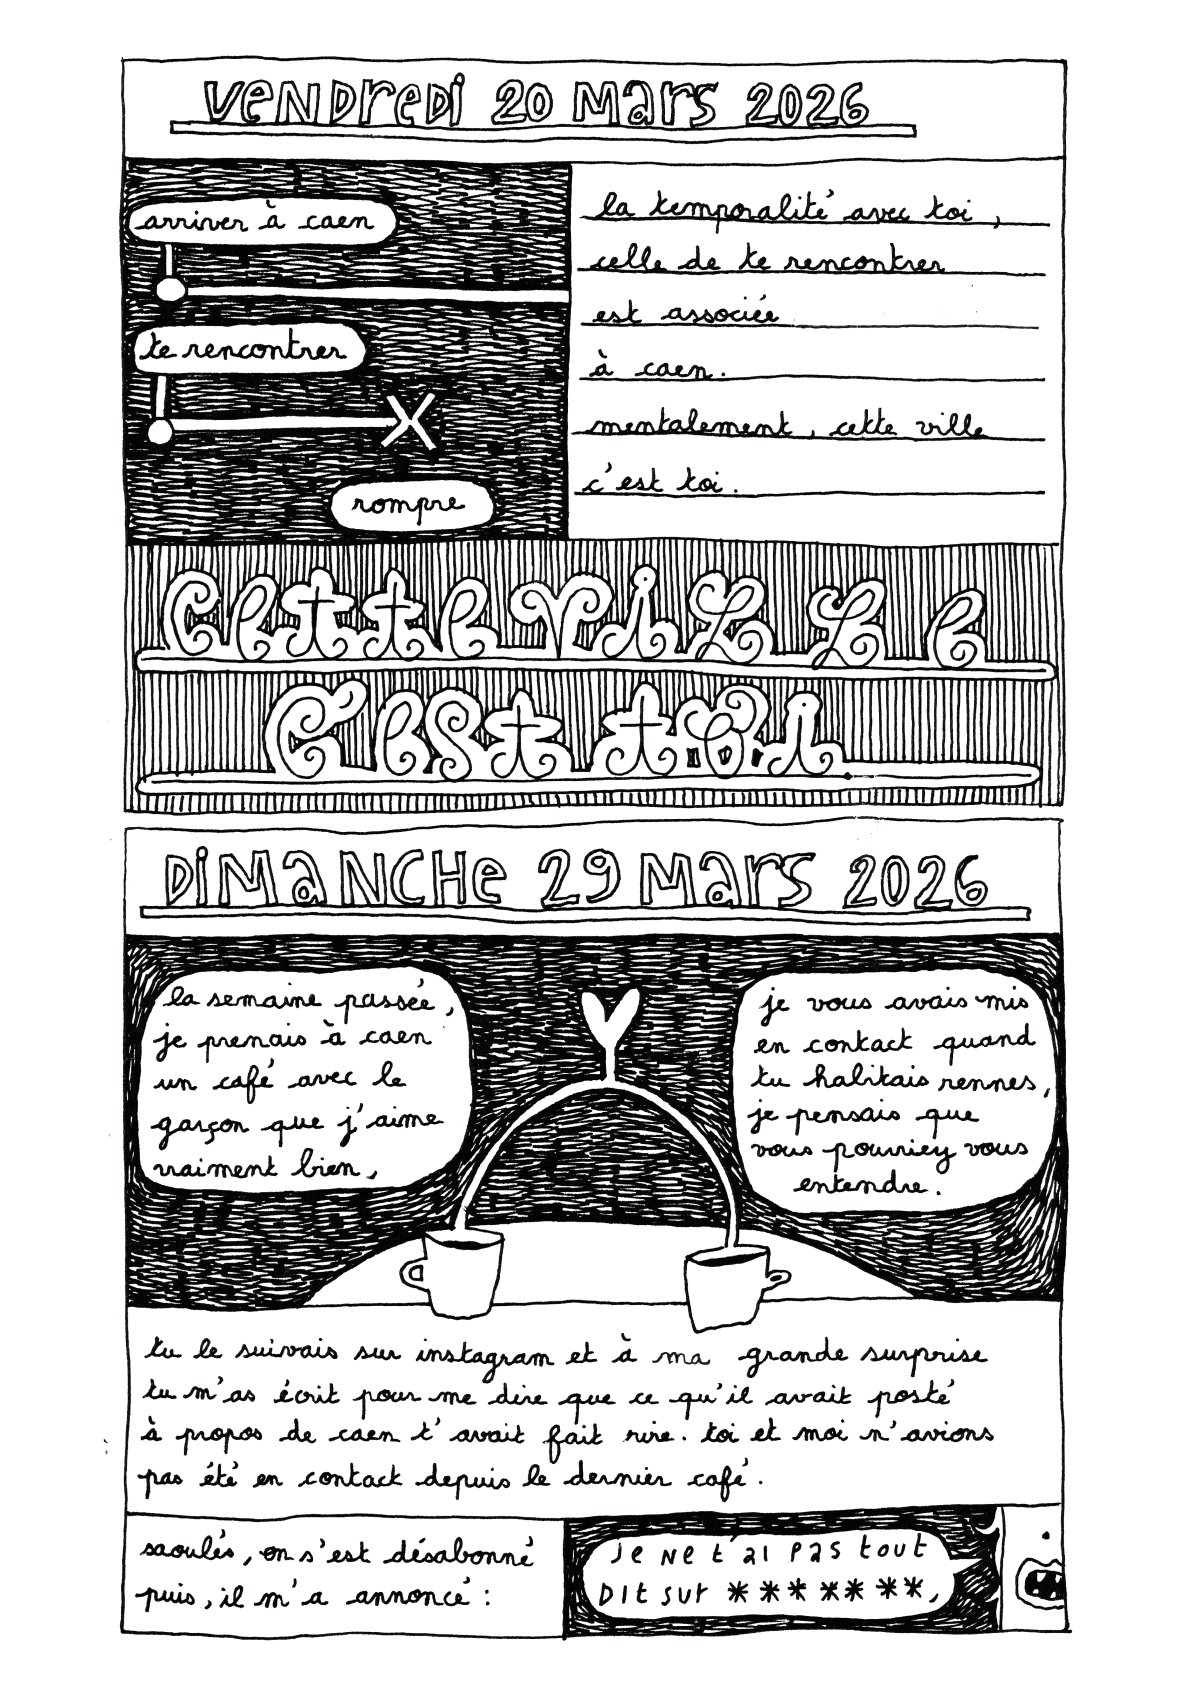 VENDREDI 20 MARS 2026
arriver à caen
te rencontrer
rompre
la temporalité avec toi,
celle de te rencontrer
est associée
à caen.
mentalement, cette ville
c'est toi.
CETTE VILLE
C'EST TOI
DIMANCHE 29 MARS 2026
la semaine passée,
je prenais à caen
un café avec le
garçon que j'aime
vraiment bien,
je vous avais mis
en contact quand
tu habitais rennes,
je pensais que
vous pourriez vous
entendre.
tu le suivais sur instagram et à ma grande surprise
tu m'as écrit pour me dire que ce qu'il avait posté
à propos de caen t'avait fait rire. toi et moi n'avions
pas été en contact depuis le dernier café.
saoulés, on s'est désabonné
puis, il m'a annoncé :
JE NE T'AI PAS TOUT
DIT SUR *******,